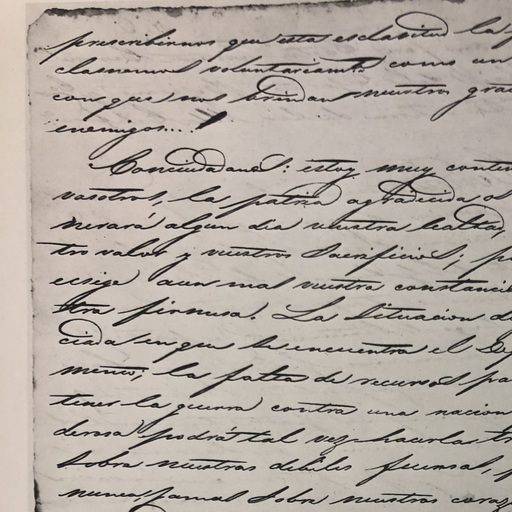 prescribirnos que esta esclavitud la
clasnamos voluntariamte como un
con que nos brindan nuestros gra
enemigos...!
Conciudadanos: estoy muy conten
vosotros, la patria agradecida os
nerará algun dia vuestra lealtad,
tro valor y vuestros Sacrificios; p
ecsige aun mas vuestra constancia
tra firmesa. La Situacion d
ciada en que se encuentra el De
mento; la falta de recursos pa
tener la guerra contra una nacion
derosa podrá tal vez hacerlas tr
sobre nuestras debiles fuersas, p
nunca jamas sobre nuestros cora